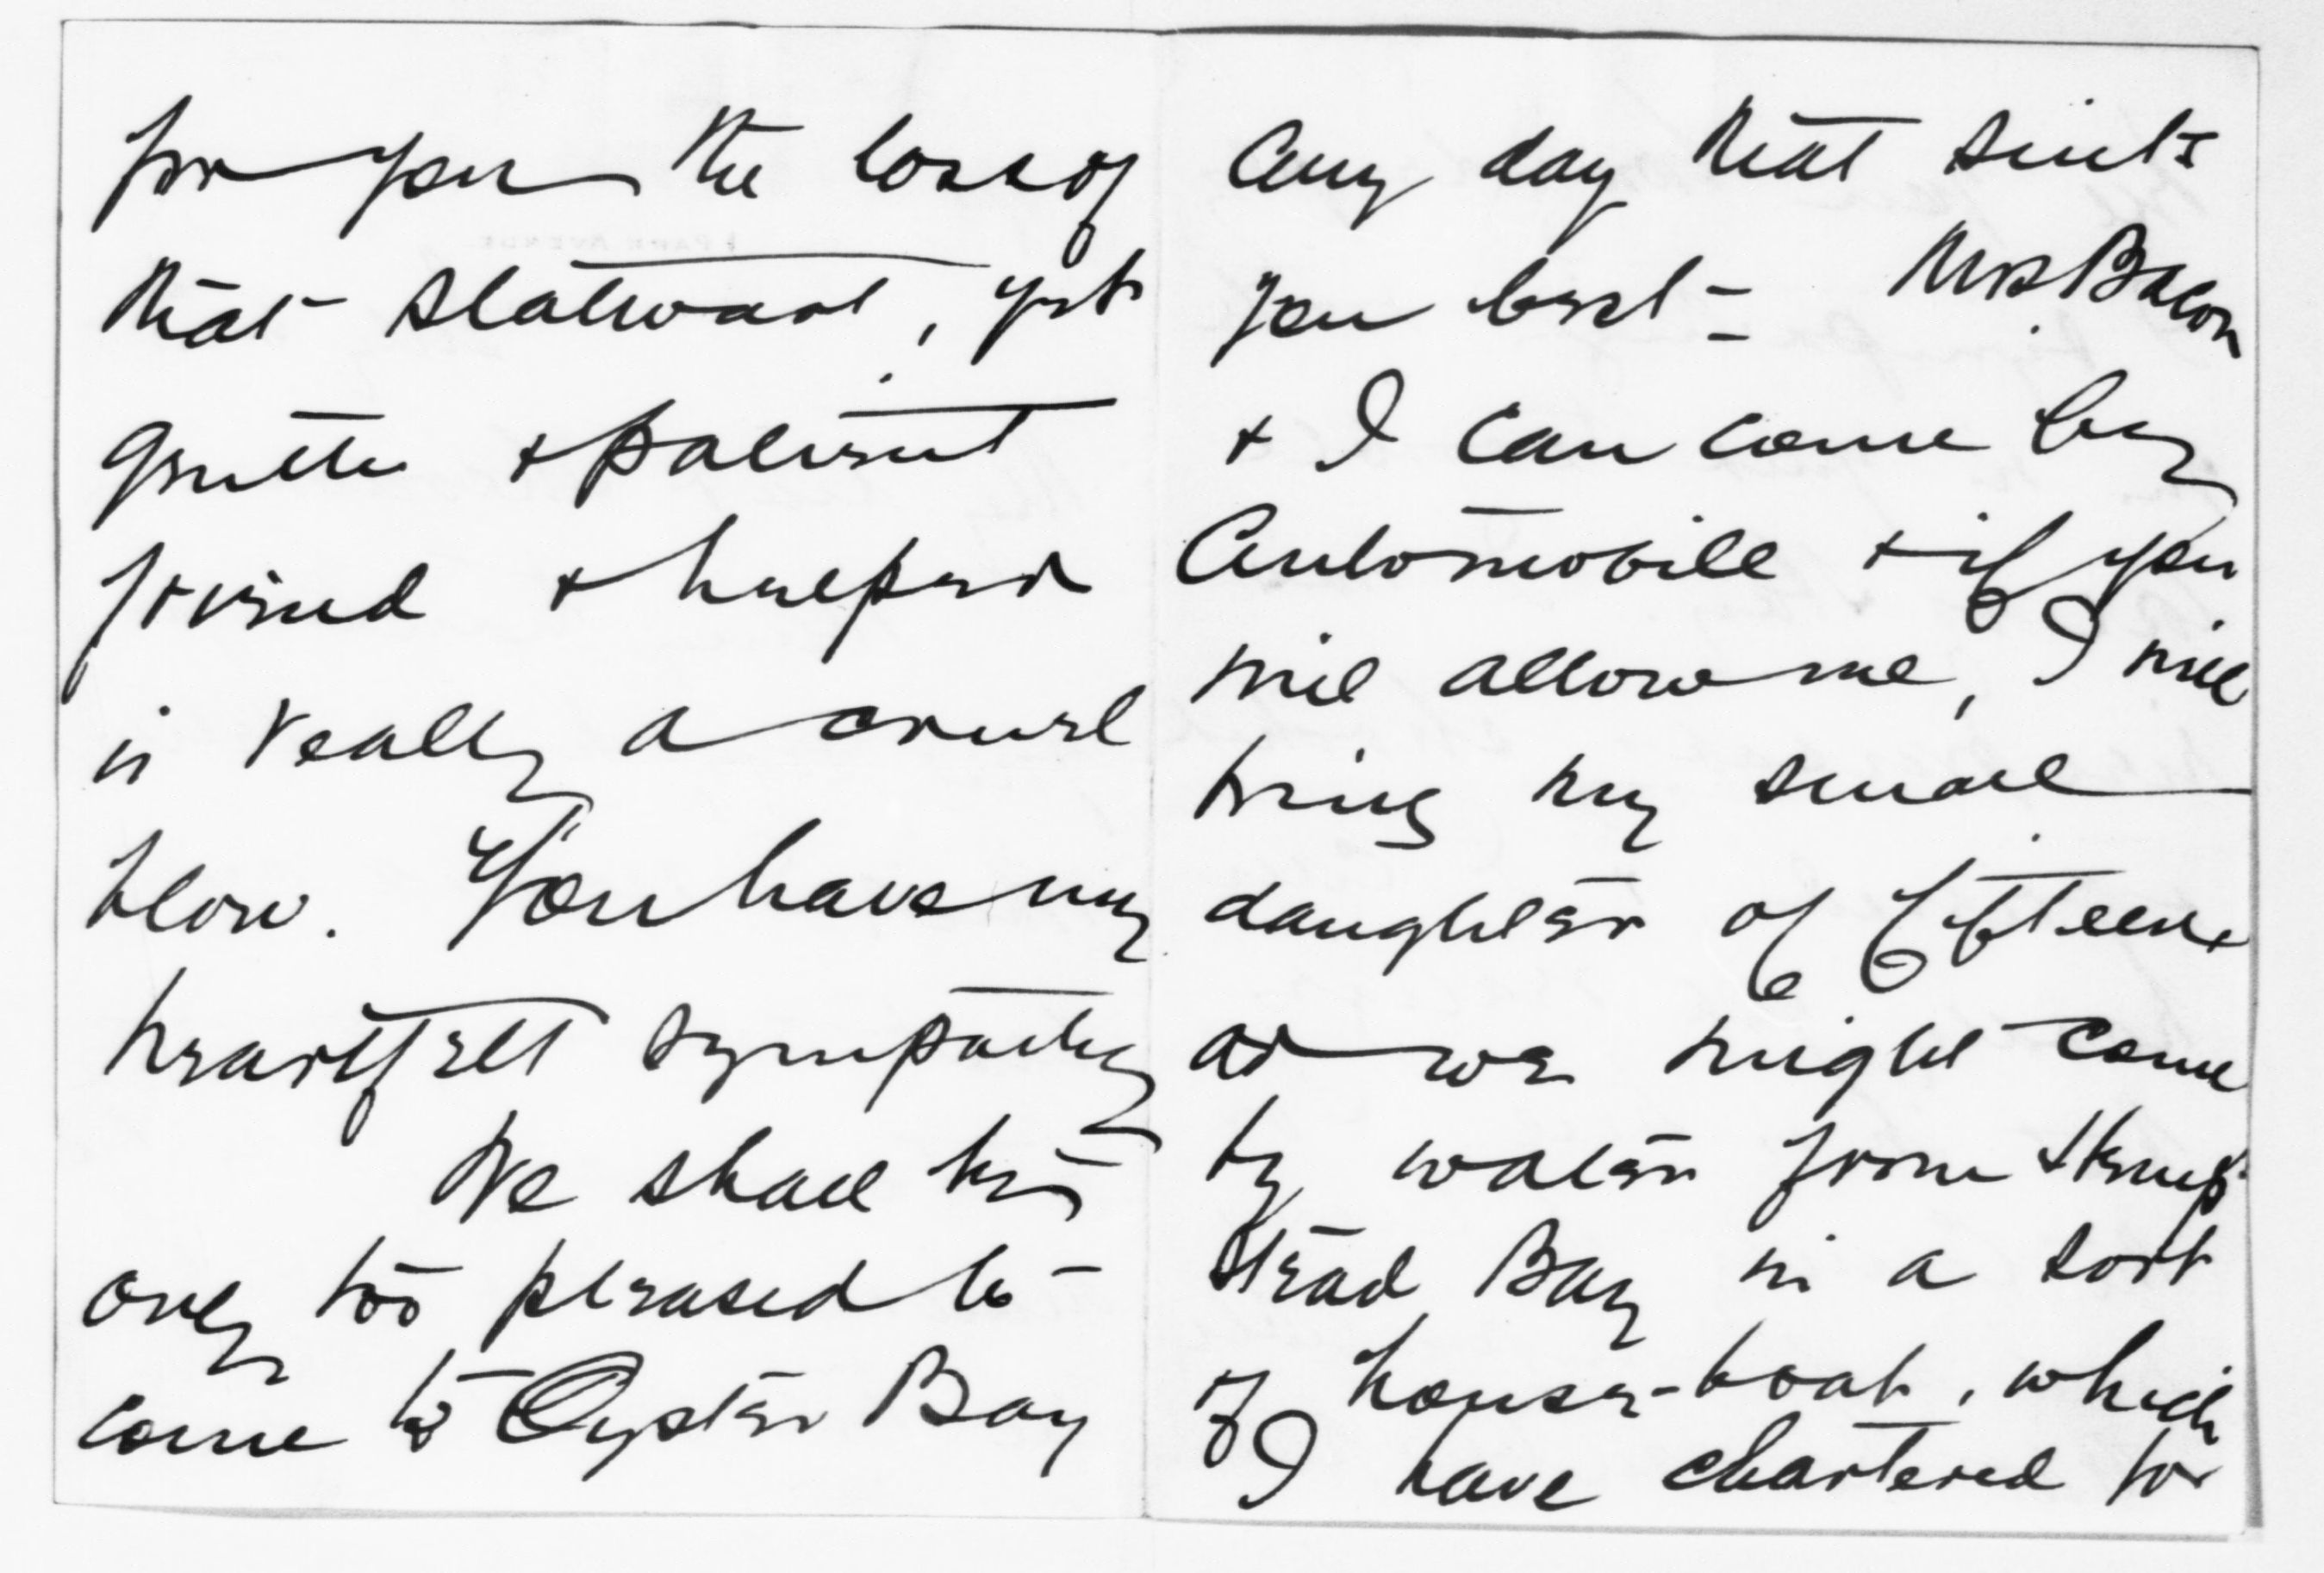 for you the loss of
that stalwart, yet
gentle & patient
friend & helper
is really a cruel
blow. You have my
heartfelt sympathy
We shall be
only too pleased to
come to Oyster Bay
any day that suits
you best – Mrs Bacon
& I can come by
Automobile & if you
will allow me, I will
bring my small
daughter of fifteen
as we might come
by water from Hemp-
stead Bay in a sort
of house-boat, which
I have chartered for